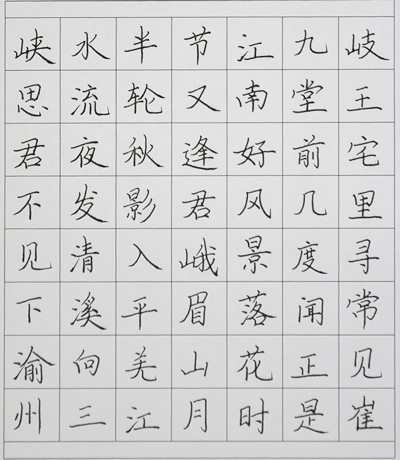 岐王宅里寻常见崔
九堂前几度闻正是
江南好风景落花时
节又逢君峨眉山月
半轮秋影入平羌江
水流夜发清溪向三
峡思君不见下渝州